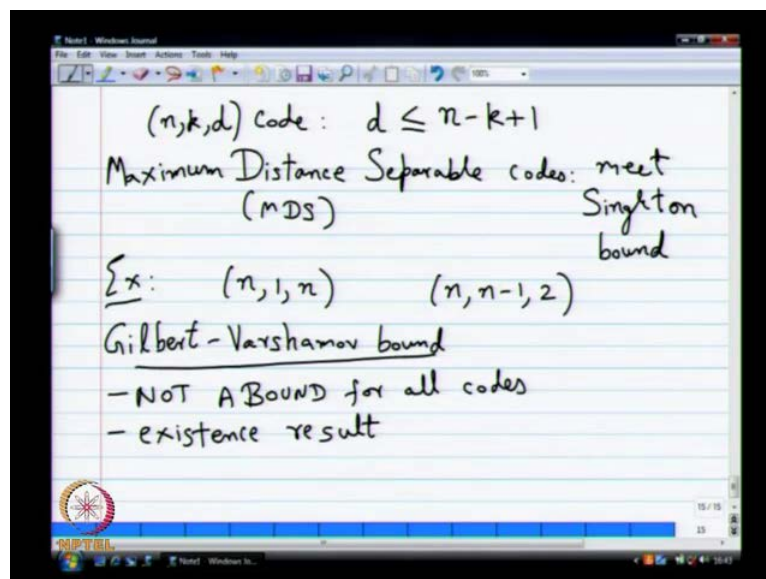 Note1 - Windows Journal
File Edit View Insert Actions Tools Help
100%
(n,k,d) code : d ≤ n-k+1
Maximum Distance Separable codes: meet
(MDS) Singleton
bound
Ex: (n,1,n) (n,n-1,2)
Gilbert-Varshamov bound
- NOT A BOUND for all codes
- existence result
15 / 15
15
NPTEL
Note1 - Windows Jo...
16:43